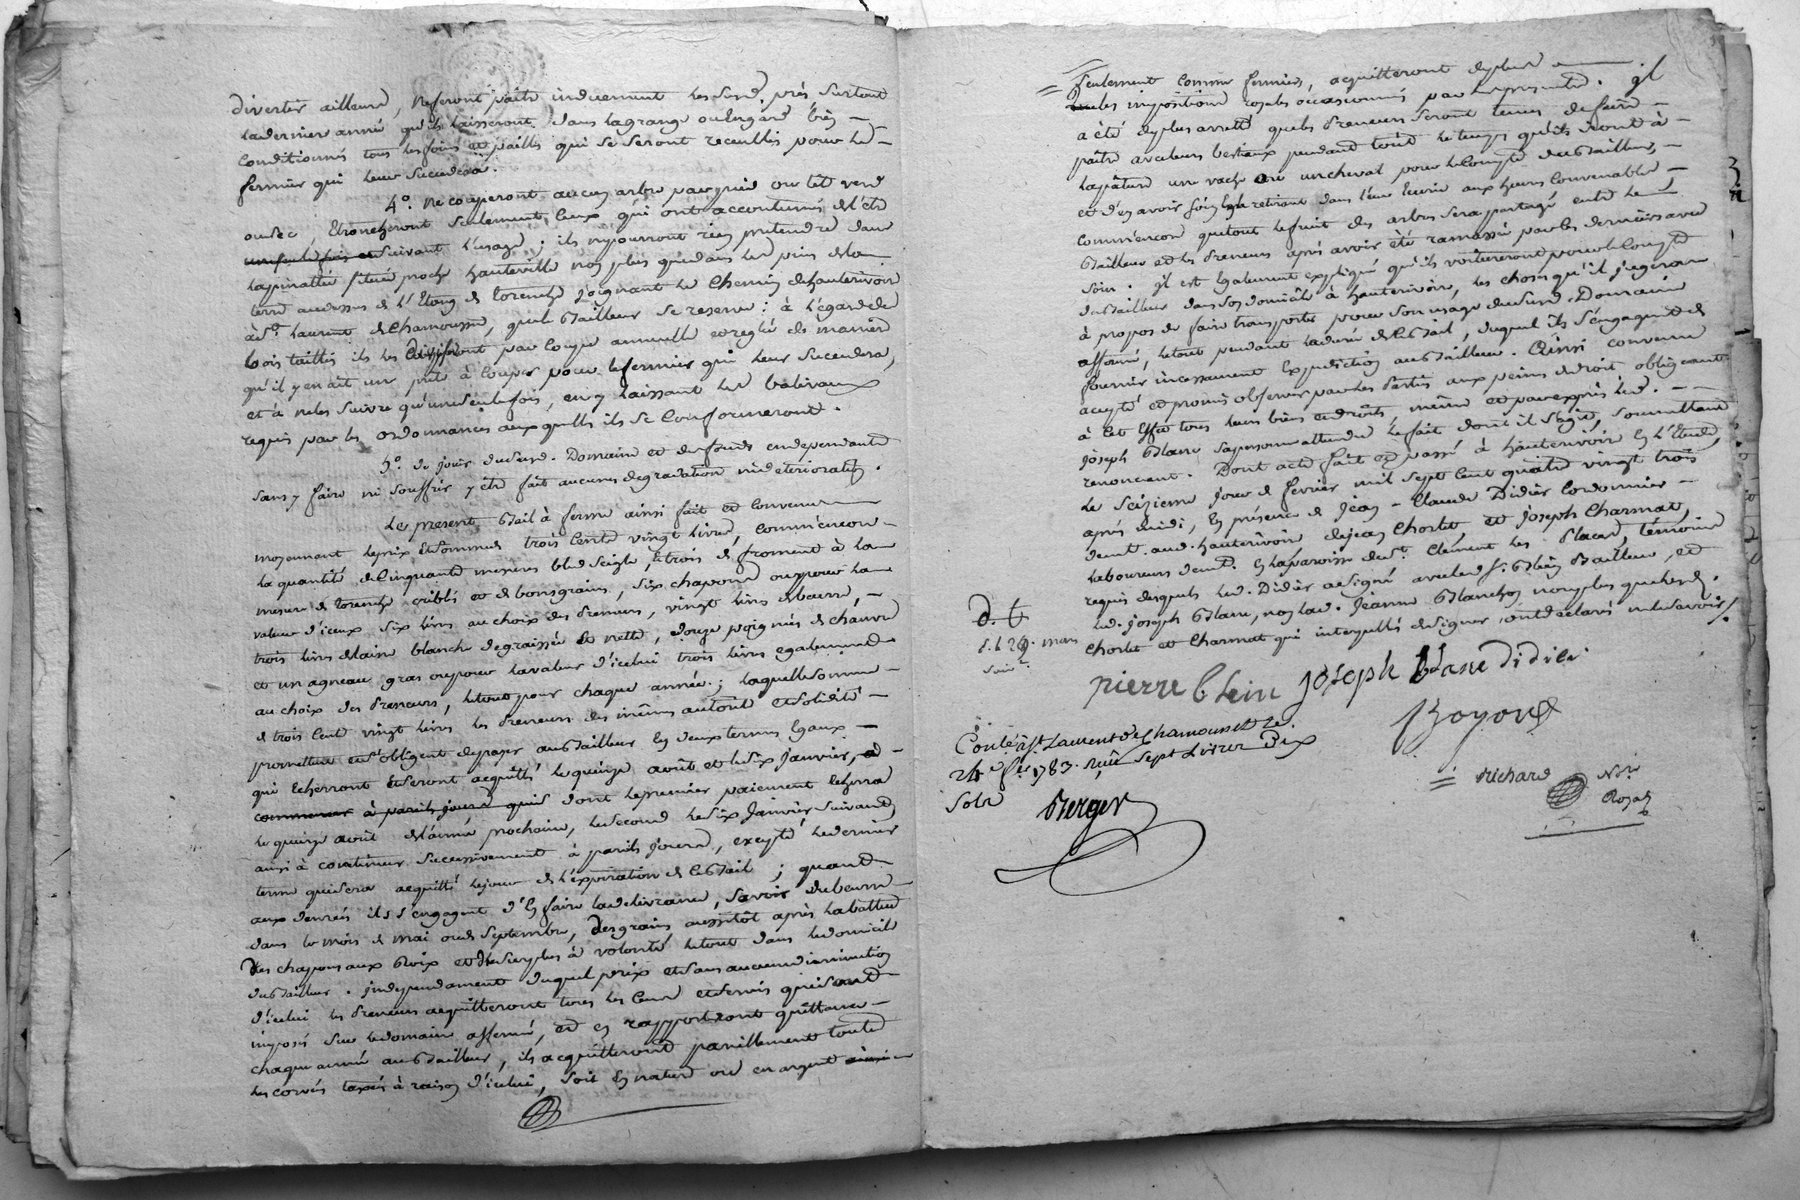 divertir ailleurs, ne feront paitre induement les susd. prés surtout
la derniere année qu'ils laisseront dans la grange ou hangard bien
conditionnés tous les foins et pailles qui se seront receuillis pour le
fermier qui leur succedera.
4°. ne couperont aucun arbre par pied ou tête verd
ou sec Etroncheront seulement ceux qui ont accoutumés de l'etre
une seule fois et suivant l'usage; ils ne pourront rien pretendre dans
la pinattée située proche hauteville non plus que dans les pins de la
terre au dessus de l'Etang de torenche joignant le Chemin de hauterivoir
à St. Laurent de Chamousset, que le Bailleur se reserve: à l'égard des
bois taillis ils les couperont par coupe annuelle et reglée de maniere
qu'il y en ait une prête à couper pour le fermier qui leur succedera,
et à ne les suivre qu'une seule fois, en y laissant les baliveaux
requis par les ordonnances auxquelles ils se conformeront.
5°. de jouir du susd. Domaine et des fonds en dependants
sans y faire ni souffrir y etre fait aucunes degradation ni deterioration.
Le present Bail à ferme ainsi fait et convenu
moyennant le prix et sommes trois Cents vingt livres, comm'encore
la quantité de Cinquante mesures bled seigle, et trois de froment à la
mesure de torenche criblés et de bons grains, six chapons ou pour la
valeur d'iceux six livres au choix des Preneurs, vingt livres de beurre,
trois livres de laine blanche degraissée et nette, douze poignées de chanvre
et un agneau gras ou pour la valeur d'icelui trois livres egalement
au choix des Preneurs, le tout pour chaque année; laquelle somme
de trois Cent vingt livres les Preneurs des mêmes autorité et solidité
promettent et s'obligent de payer au Bailleur en deux termes Egaux
qui Echerront et seront acquittés le quinze août et le six janvier,
commencer à pareils jours quis dont le premier paiement se fera
le quinze août de l'année prochaine, le second le six Janvier suivant
ainsi à continuer successivement à pareils jours, excepté le dernier
terme qui sera acquitté le jour de l'expiration de ce Bail; quant
aux denrées ils s'engagent d'en faire la delivrance, savoir du beurre
dans le mois de mai ou de Septembre, des grains aussitôt après la battue
des chapons aux Rois et du surplus à volonté le tout dans le domicile
du Bailleur. independament duquel prix et sans aucune diminution
d'icelui les Preneurs acquitteront tous les Cens et servis qui sont
imposés sur le domaine affermé, et en rapporteront quittance
chaque année au Bailleur, ils acquitteront pareillement toutes
les corvées taxées à raison d'icelui, soit en nature ou en argent
seulement comme fermiers, acquitteront de plus
les impositions royales occasionnés par le present. il
a été de plus arretté que les Preneurs seront tenus de faire
paitre avec leurs bestiaux pendant tout le temps qu'ils iront à
la pâture une vache ou un cheval pour le Compte du Bailleur,
et d'en avoir soin la retirant dans leur Ecurie aux heures convenables
comm'encore que tout le fruit des arbres sera partagé entre le
Bailleur et les Preneurs après avoir été ramassé par les derniers avec
soin. il est egalement expliqué qu'ils voitureront pour le Compte
du Bailleur dans son domicile à hauterivoir, les choses qu'il jugera
à propos de faire transporter pour son usage du susd. Domaine
affermé, le tout pendant la durée de ce Bail, duquel ils s'engagent de
fournir incessament Expedition au Bailleur. Ainsi convenu
accepté et promis observer par les Parties aux peines de droit obligeants
à cet Effet tous leurs biens et droits, même et par exprès led.
joseph Blanc sa personne attendu le fait dont il s'agit, soumettant
renoncant. Dont acte fait et passé à hauterivoir en l'Etude
Le seizieme jour de fevrier mil sept cent quatre vingt trois
après midi, en présence de Jean-Claude Didier Cordonnier
demt. aud. hauterivoir de jean Chorlet et joseph Charmat,
laboureurs demt. en la paroisse de St. Clément les Places, témoins
requis desquels led. Didier a signé avec led. Sr. Blein Bailleur, et
led. joseph Blanc, non lad. Jeanne Blanchon non plus que lesd.
Chorlet et Charmat qui interpellés de signer, ont declarés ne le savoir/.
d. t
d. L 29. mars
pierre blein joseph blanc didier
Boyord
Contlé. à St. Laurent de Chamousset le
24e fer. 1783. Reçu Sept Livres Dix
Sols Berger
Richard Nre
Royal